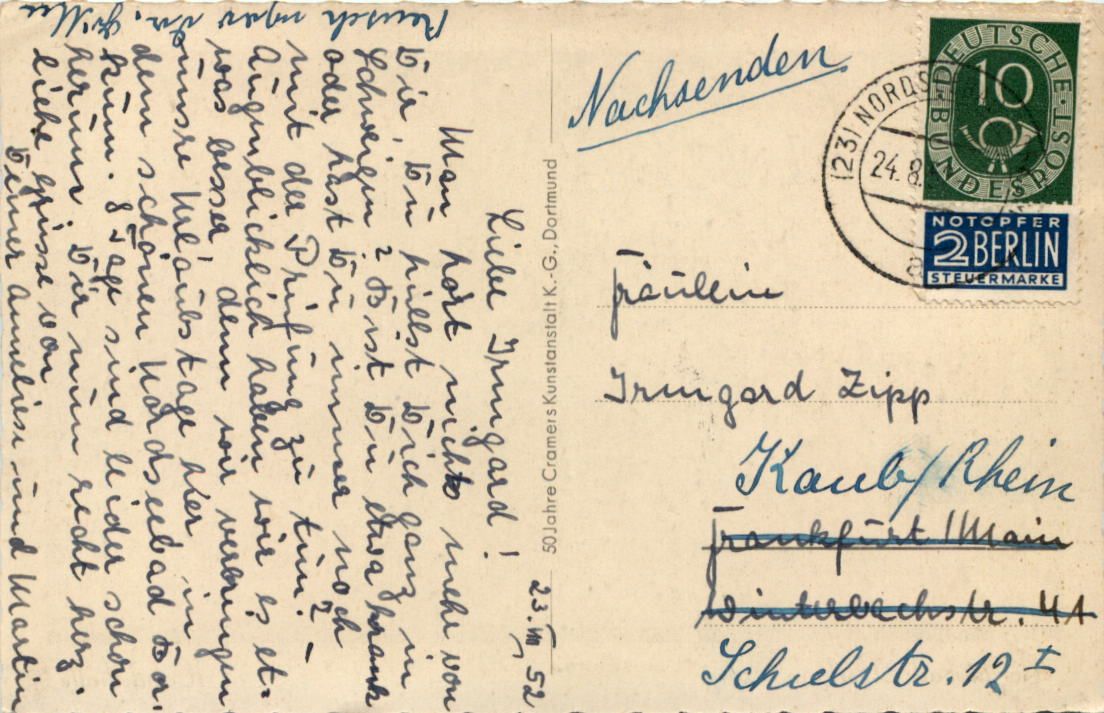 23. VIII. 52
Liebe Irmgard!
Man hört nichts mehr von
Dir, Du hüllst Dich ganz in
Schweigen? Bist Du etwa krank
oder hast Du immer noch
mit der Prüfung zu tun?
Augenblicklich haben wir es et-
was besser, denn wir verbringen
unsre Urlaubstage hier in
dem schönen Nordseebad Bor-
kum. 8 Tage sind leider schon
herum. Dir nun recht herz.
liebe Grüsse von
Deiner Annelies und Martin
50 Jahre Cramers Kunstanstalt K.-G., Dortmund
Nachsenden
DEUTSCHE BUNDESPOST
10
NOTOPFER
2 BERLIN
STEUERMARKE
(23) NORDS
24.8.
Fräulein
Irmgard Zipp
Kaub/Rhein
Frankfurt/Main
Winterbachstr. 41
Schulstr. 12 I